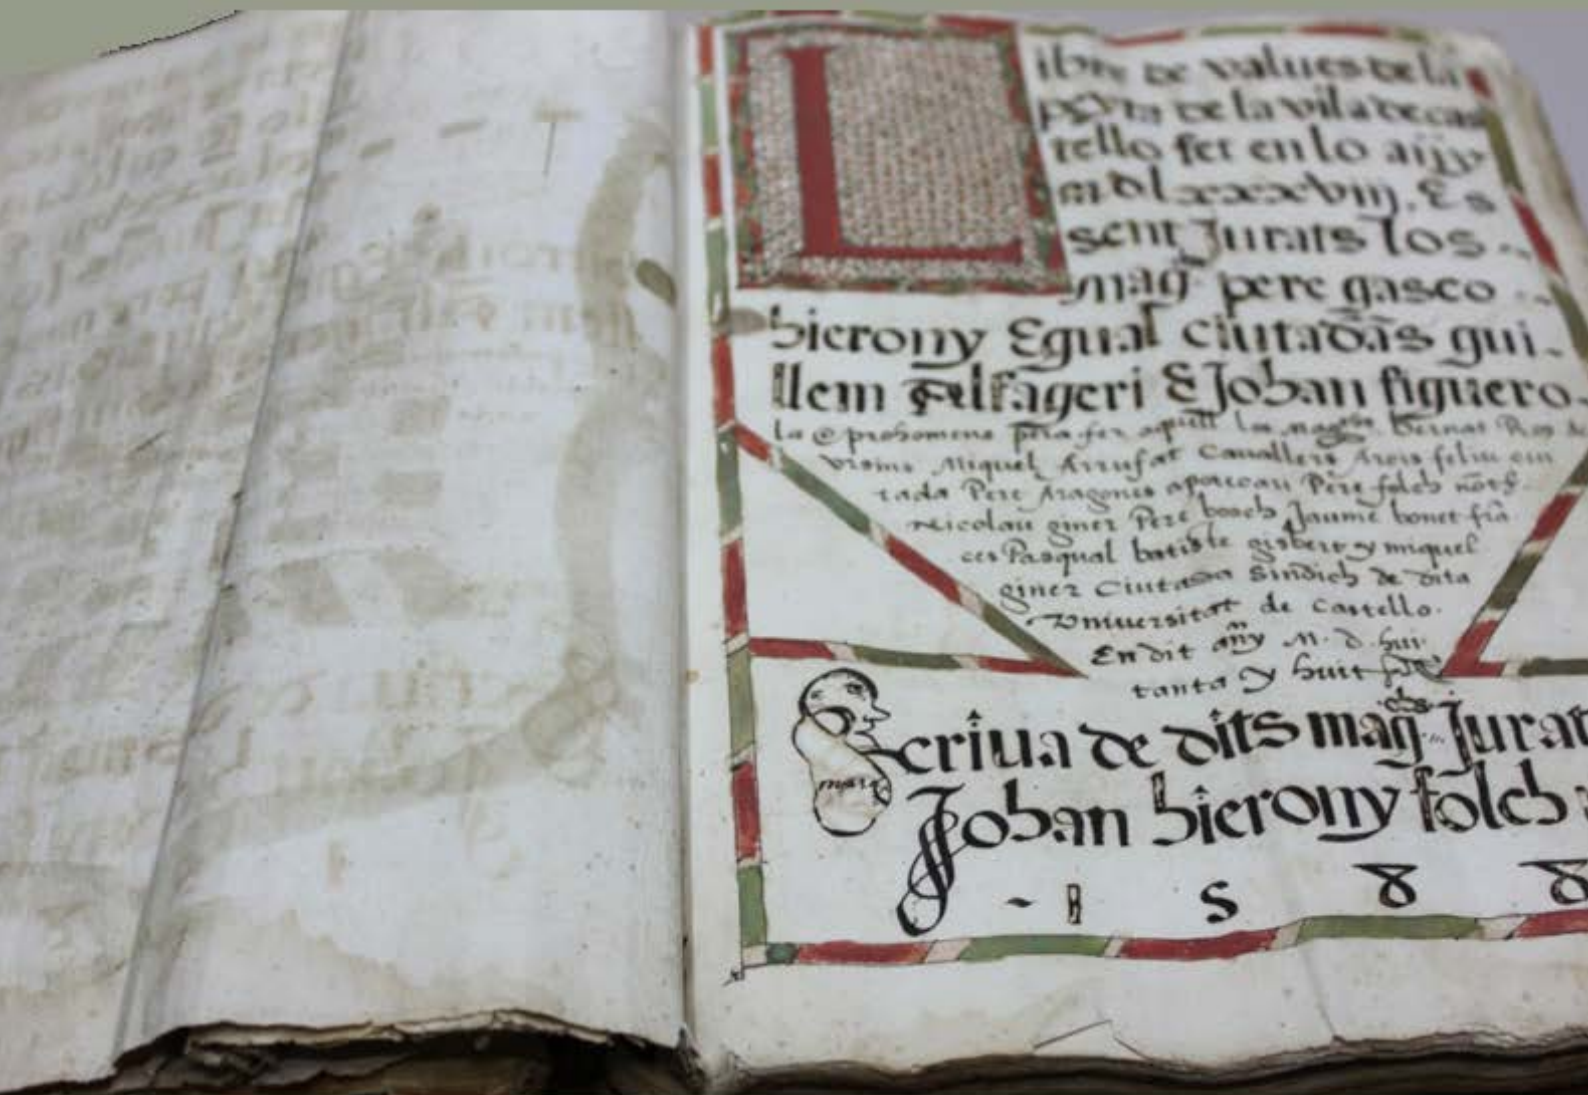 Libre de values de la
peyta de la vila de cas
tello fet en lo any
mdlxxxviij. Es
sent Jurats los
mag. pere gasco
hierony Egual ciutadãs gui
llem Felfageri & Johan figuero
la e prohomens pera fer aquell los magchs. Bernat
Miquel Arrufat Cavallers Arois feliu ciu
tada Pere Aragones apotecari Pere folch noth.
Nicolau giner Pere bosch Jaume bonet frã
ces Pasqual batiste gisbert y miquel
giner Ciutada Sindich de dita
Vniuersitat de Castello.
En dit any M. D. huy
tanta y huit
Scriua de dits mag. Jurat
Johan hierony folch
1 5 8 8